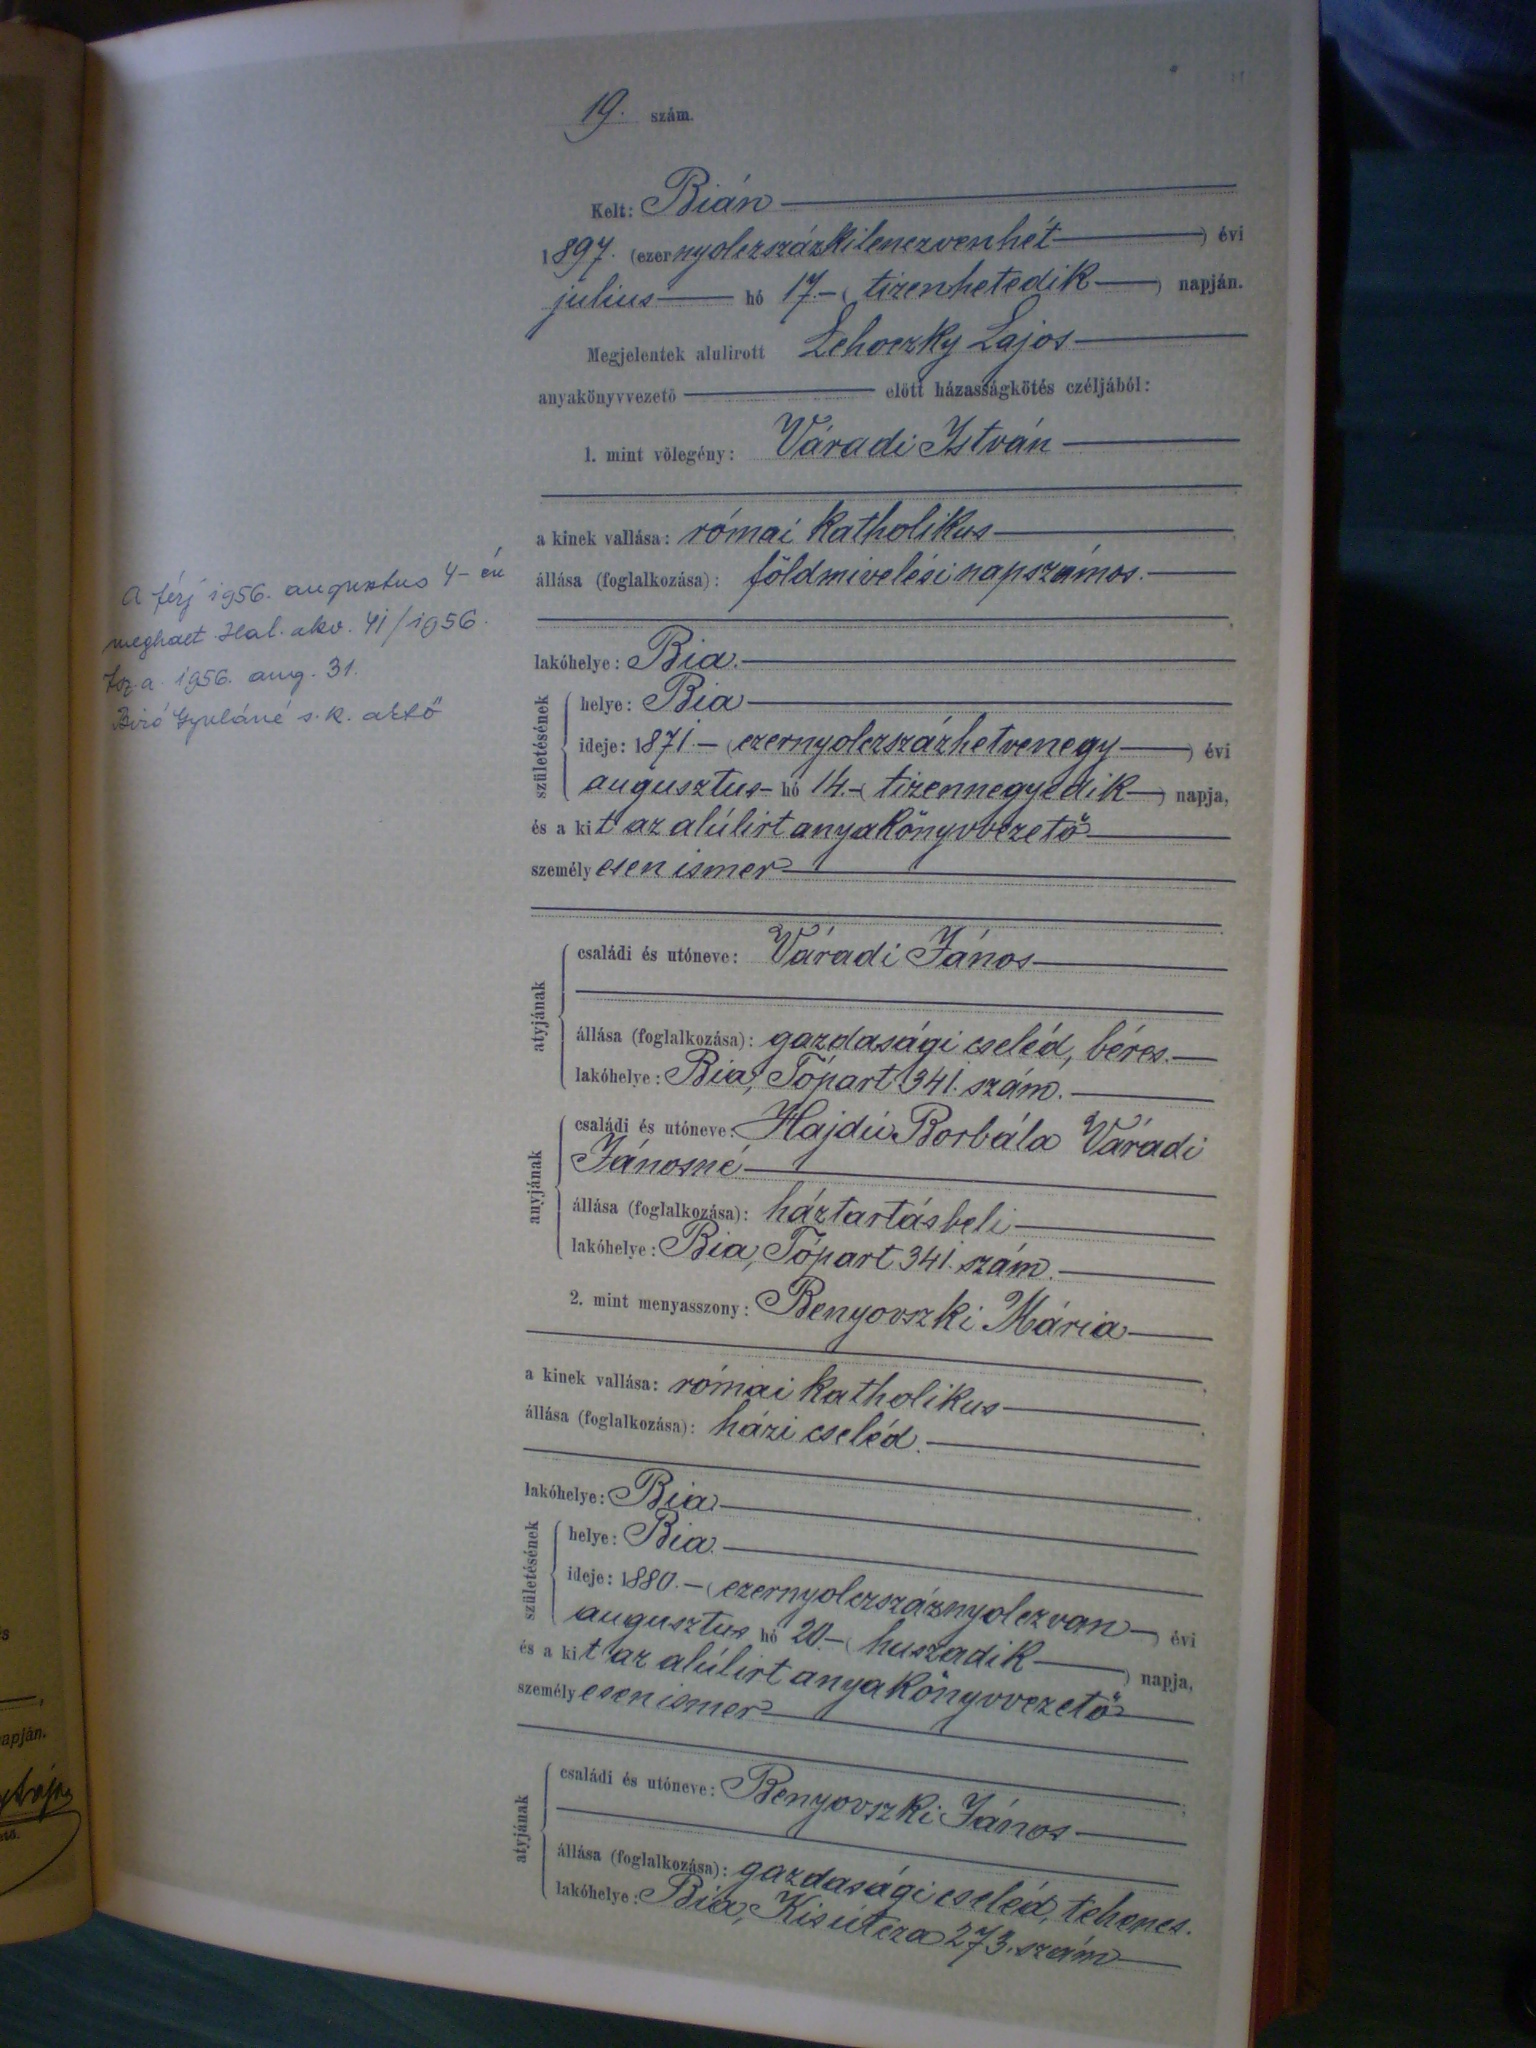 19. szám.
Kelt: Bián
1897. (ezernyolczszázkilenczvenhét) évi
julius hó 17.- (tizenhetedik) napján.
Megjelentek alulirott Lehoczky Lajos
anyakönyvvezető előtt házasságkötés czéljából:
1. mint vőlegény: Váradi István
a kinek vallása: római katholikus
állása (foglalkozása): földmivelési napszámos.
lakóhelye: Bia.
születésének
helye: Bia
ideje: 1871.- (ezernyolczszázhetvenegy) évi
augusztus hó 14.- (tizennegyedik) napja,
és a kit az alúlirt anyakönyvvezető
személyesen ismer
atyjának
családi és utóneve: Váradi János
állása (foglalkozása): gazdasági cseléd, béres.
lakóhelye: Bia, Tópart 341. szám.
anyjának
családi és utóneve: Hajdú Borbála Váradi
Jánosné
állása (foglalkozása): háztartásbeli
lakóhelye: Bia, Tópart 341. szám.
2. mint menyasszony: Benyovszki Mária
a kinek vallása: római katholikus
állása (foglalkozása): házi cseléd.
lakóhelye: Bia
születésének
helye: Bia.
ideje: 1880.- (ezernyolczszáznyolczvan) évi
augusztus hó 20.- (huszadik) napja,
és a kit az alúlirt anyakönyvvezető
személyesen ismer
atyjának
családi és utóneve: Benyovszki János
állása (foglalkozása): gazdasági cseléd, tehenes.
lakóhelye: Bia, Kis útcza 273. szám
A férj 1956. augusztus 4-én
meghalt Hal. akv. 41/1956.
1956. aug. 31.
Biró Gyuláné s.k.
apján.